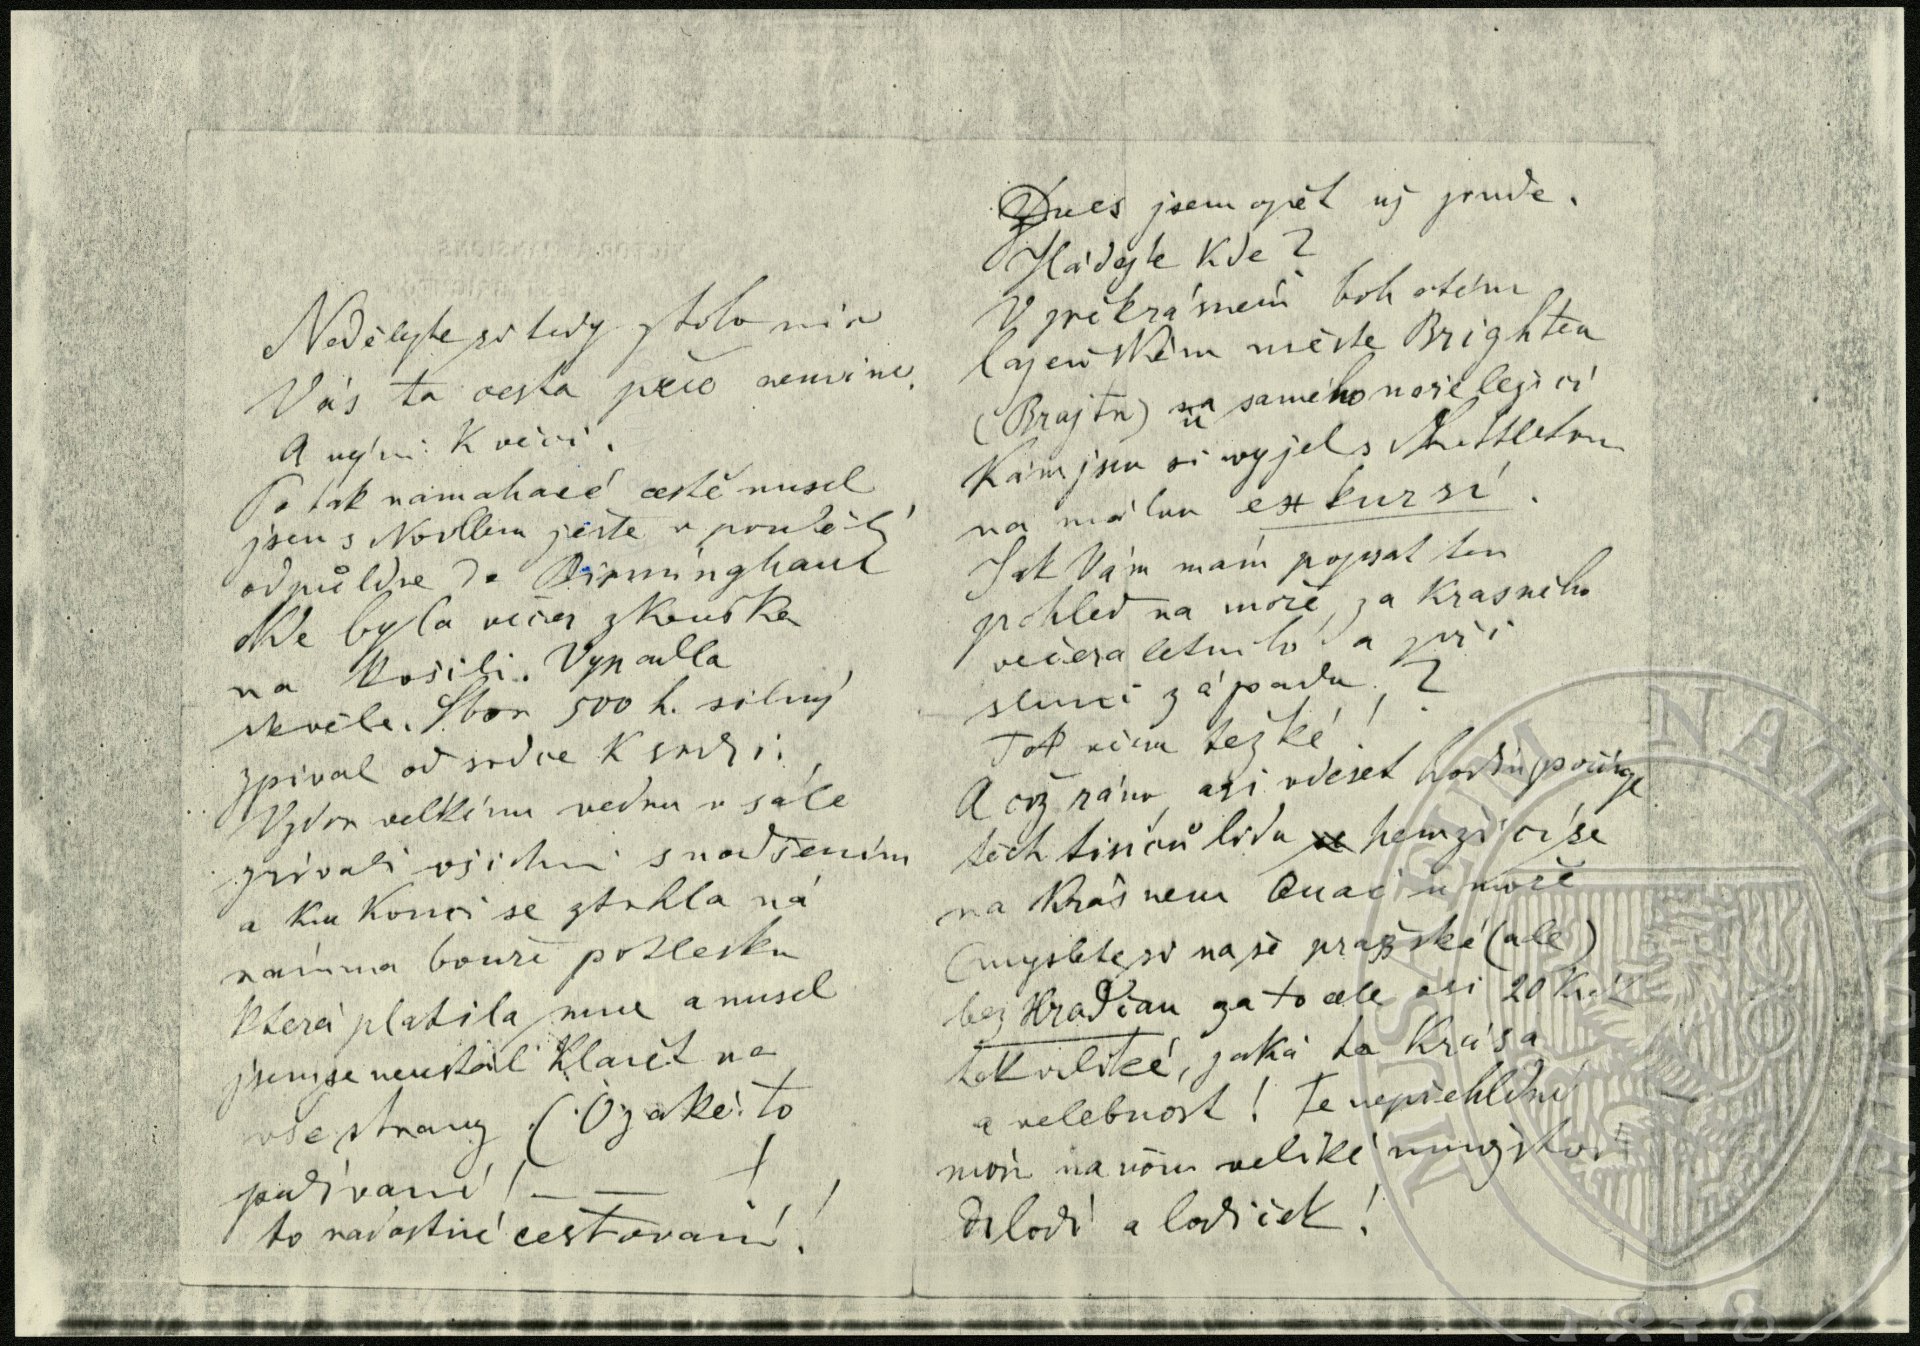 Nedělejte si tedy z toho nic
Vás ta cesta přeč nemine.
A nyní k věci.
Po tak namahavé cestě musel
jsem s Novellem ješte v pondělí
odpůldne do Birminghamu
kde byla večer zkouška
na Košili. Vypadla
skvěle. Sbor 500 h. silný
zpíval od srdce k srdci.
Vzdor velkému vedru v sále
zpívali všichni s nadšením
a ku konci se ztrhla ná
ramna bouře potlesku
která platila mne a musel
jsem se neustál klanět na
vše strany. (O jaké to
podívaní! — — !
to radostné cestovaní!
Dnes jsem opět už jinde.
Hádejte kde?
V překrásnem bohatém
lazeňském měste Brighton
(Brajtn) u samého moře ležící
kam jsem si vyjel s Littletonem
na málou exkursí.
Jak Vám mám popsat ten
pohled na moře, za krasného
večera letního a při
slunci západu?
Tot věru težké!
A což ráno asi v deset hodin počínaje
těch tisíců lidu hemzící se
na krásnem quai u moře
(myslete si naše pražské (ale)
bez Hradčan za to ale asi 20 krát
tak veliké, jaká ta krása
a velebnost! Te nepřehledné
moři na něm veliké množstvi
lodí a lodiček!